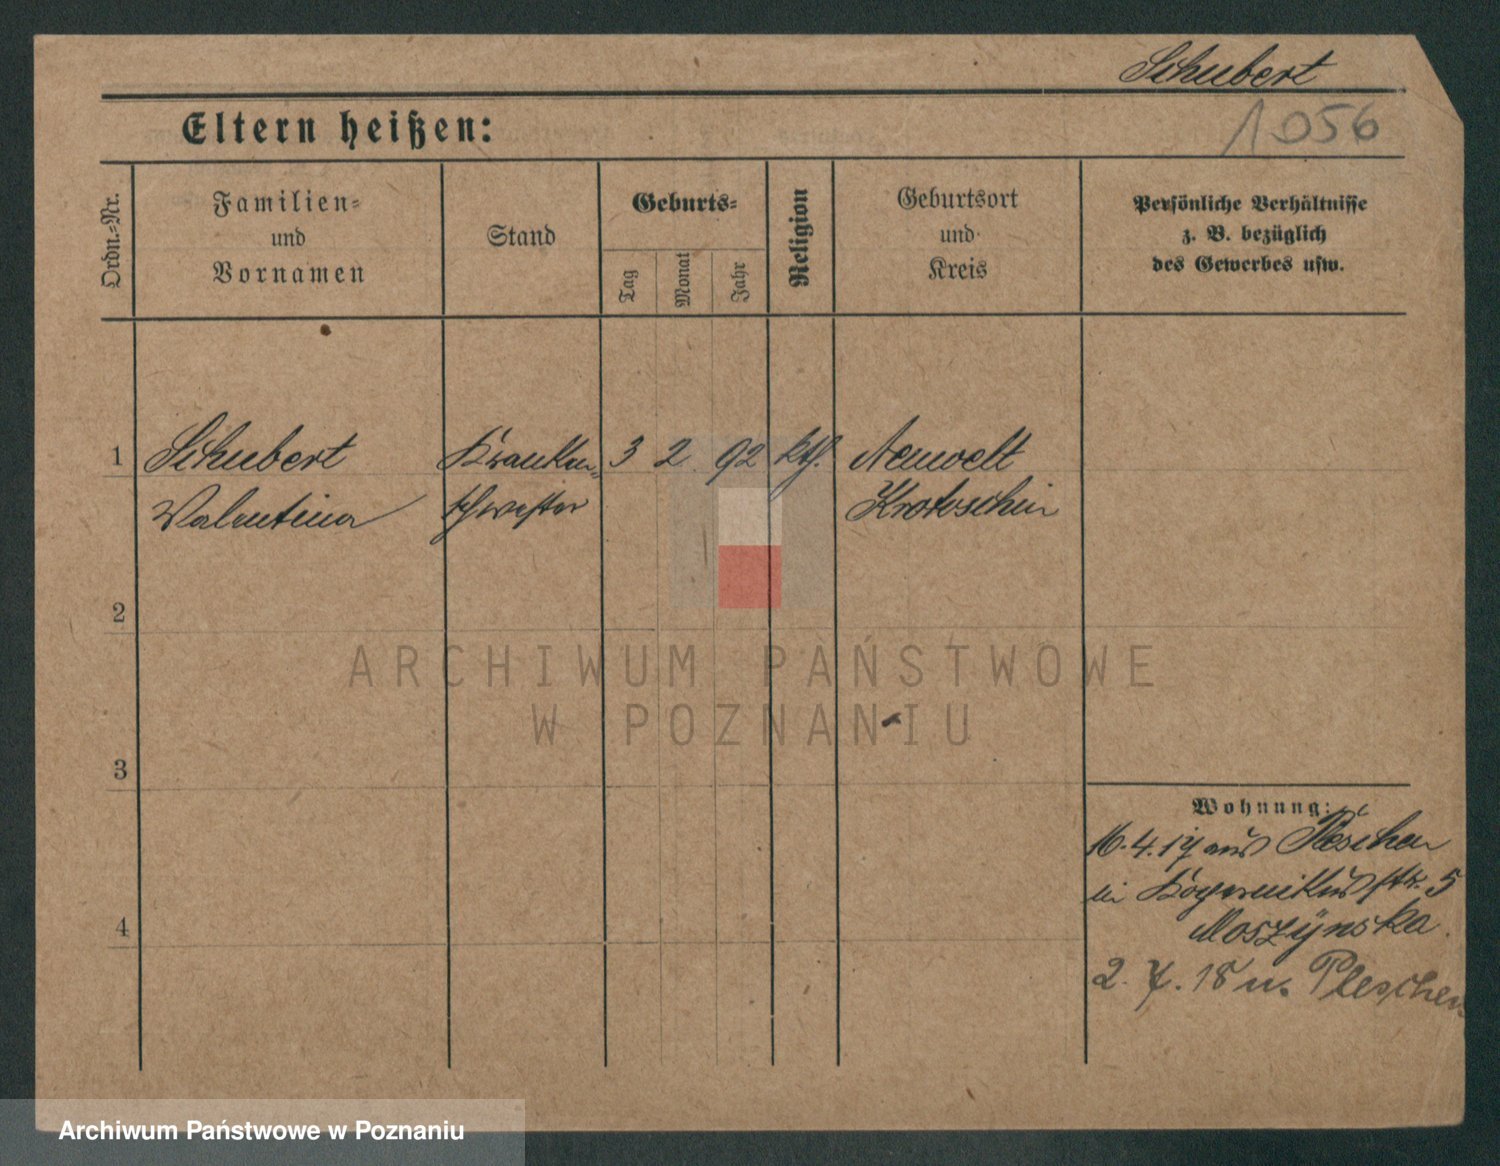 Schubert
1056
Eltern heißen:
Ordn.-Nr.
Familien-
und
Vornamen
Stand
Geburts-
Tag
Monat
Jahr
Religion
Geburtsort
und
Kreis
Persönliche Verhältnisse
z. B. bezüglich
des Gewerbes usw.
1 Schubert Kranken- 3 2 92 kth. Neuwelt
Valentina schwester Krotoschin
2
3
4
Wohnung:
16.4.17 aus Pleschen
in Kopernikusstr. 5
Moszÿnska.
2. 7. 18 n. Pleschen
ARCHIWUM PAŃSTWOWE
W POZNANIU
Archiwum Państwowe w Poznaniu